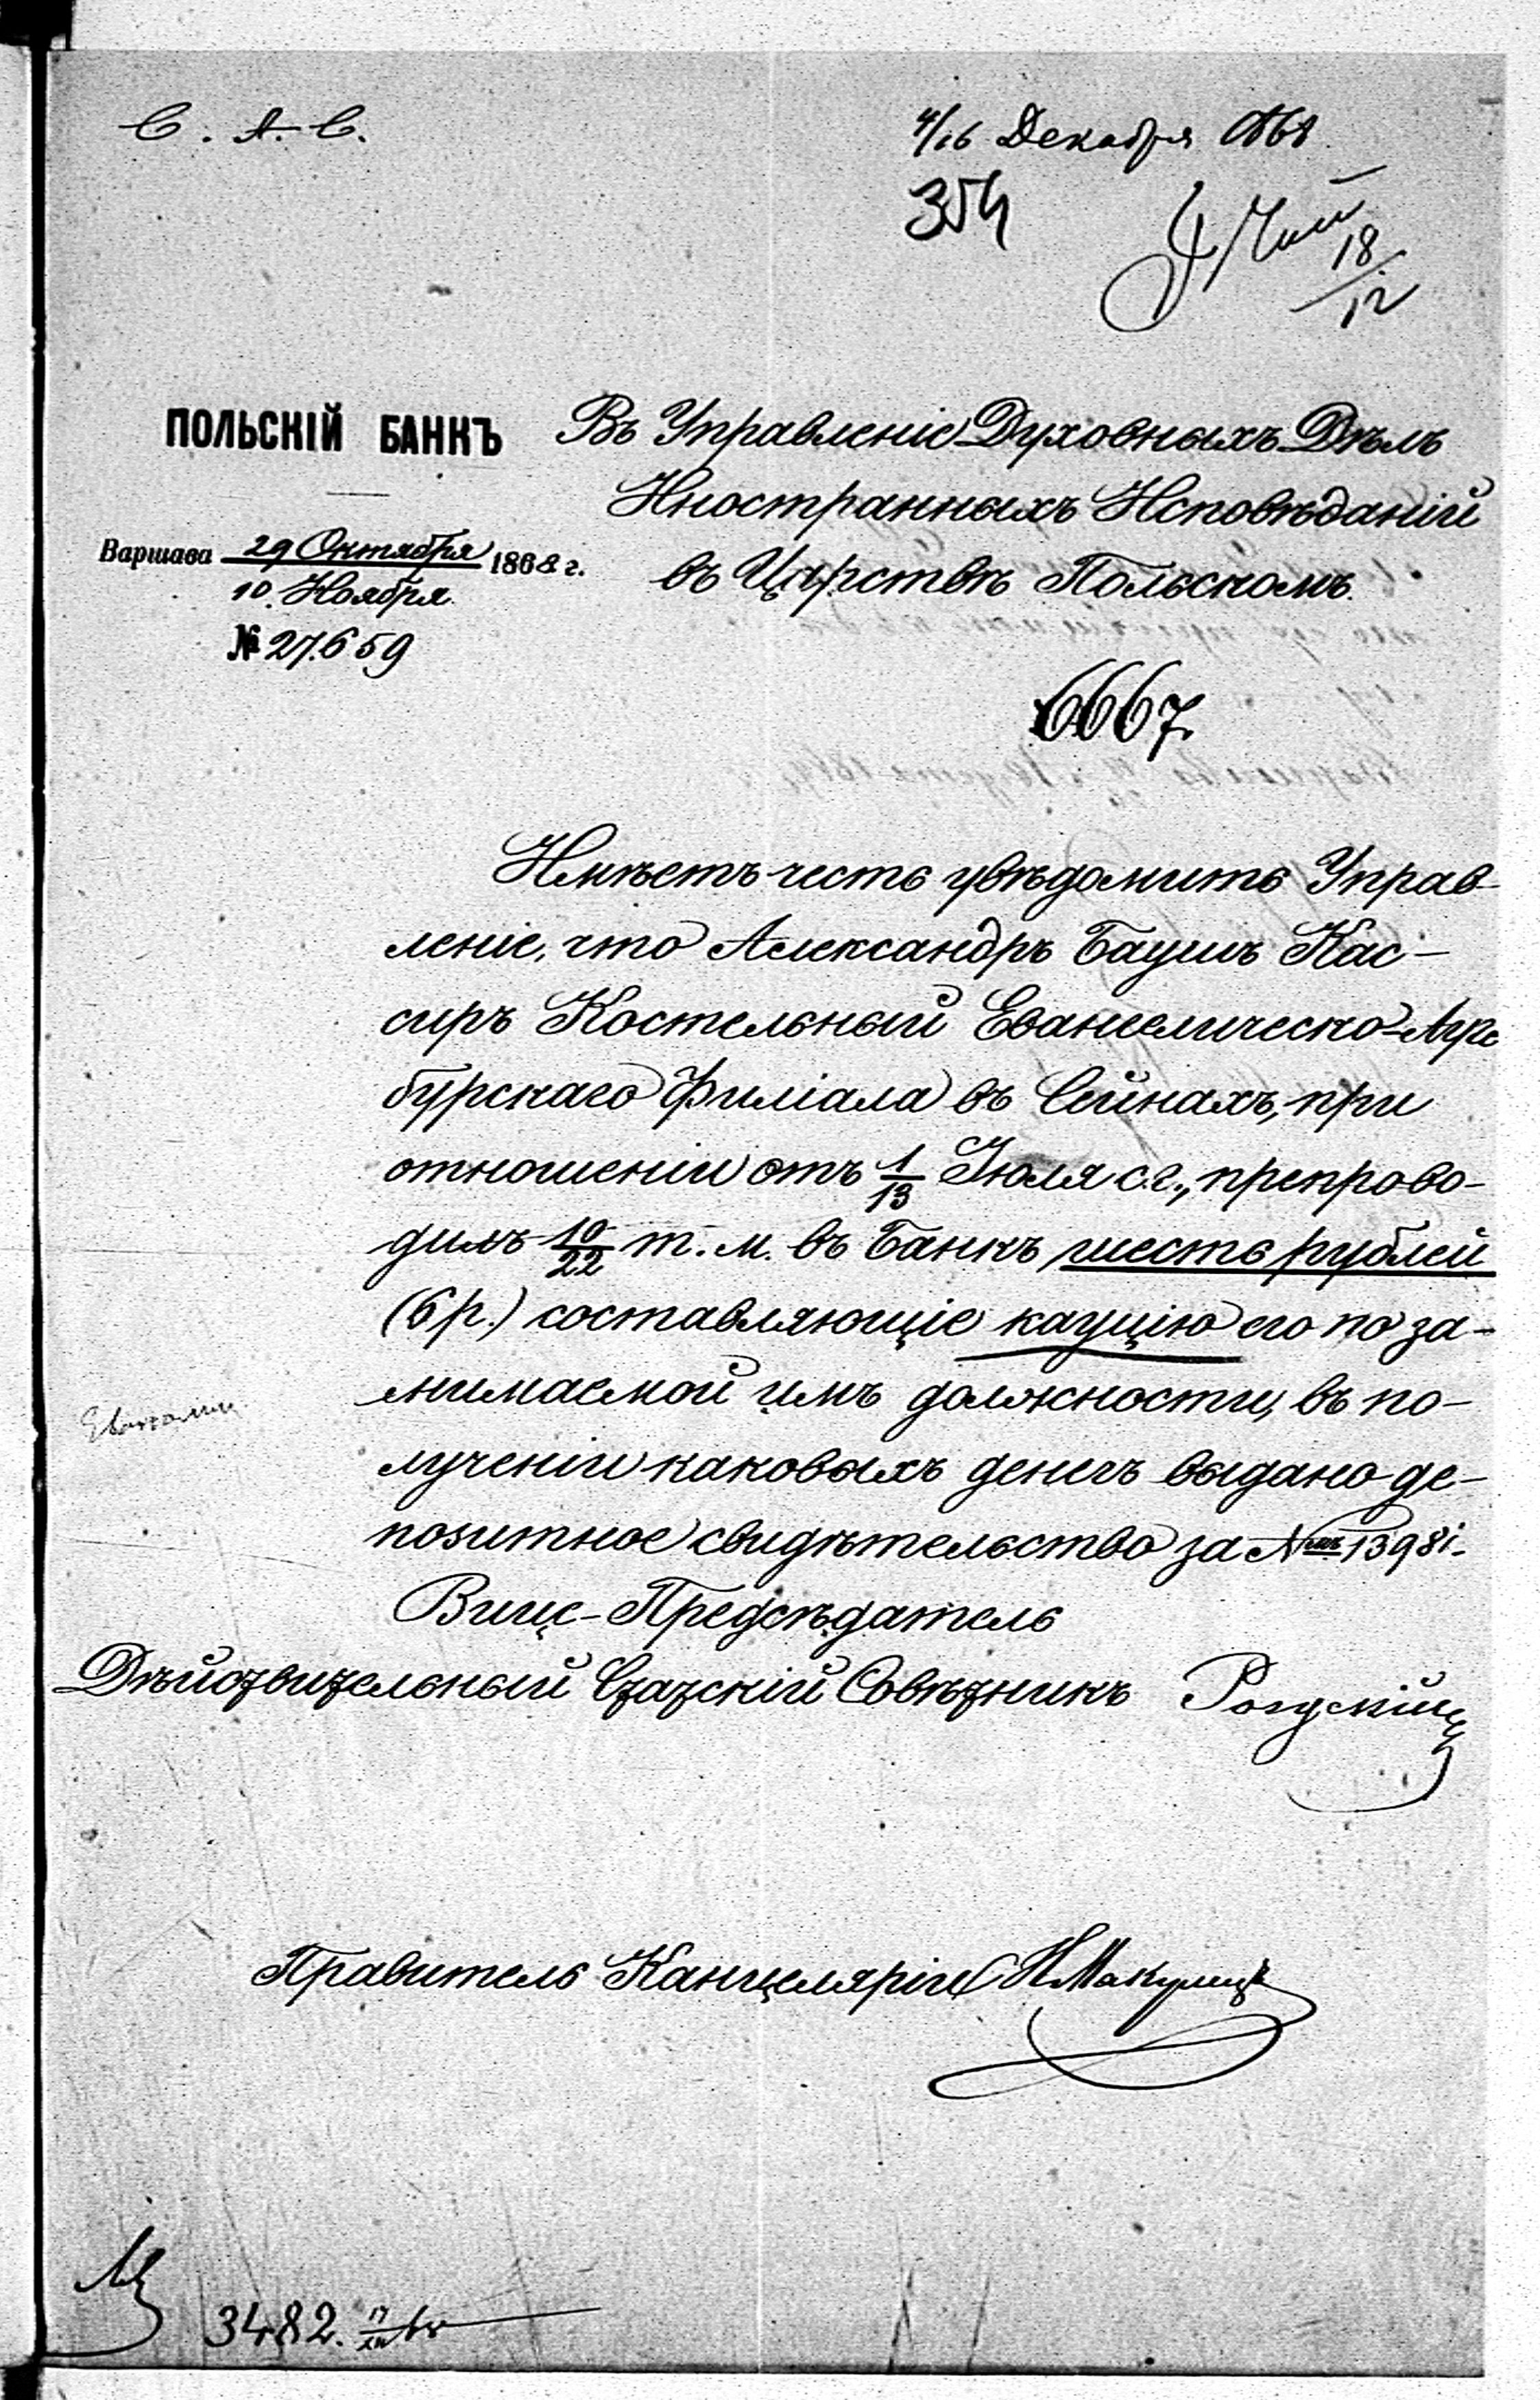 С. А. С.
4/16 Декабря 1868
354
18/12
ПОЛЬСКІЙ БАНКЪ
Варшава 29 Октября 1868 г.
10 Ноября
№ 27.659
Въ Управленіе Духовныхъ Дѣлъ
Иностранныхъ Исповѣданій
въ Царствѣ Польскомъ.
6667
Имѣетъ честь увѣдомить Управ-
леніе, что Александръ Баушъ Кас-
сиръ Костельный Евангелическо-Аугс
бурскаго Филіала въ Сейнахъ, при
отношеніи отъ 1/13 Іюля с.г., препрово-
дилъ 10/22 т. м. въ Банкъ шесть рублей
(6 р.) составляющіе кауцію его по за-
нимаемой имъ должности, въ по-
лученіи каковыхъ денегъ выдано де-
позитное свидѣтельство за №мъ 13981.
Вице-Предсѣдатель
Дѣйствительный Статскій Совѣтникъ
Правитель Канцеляріи
3482.